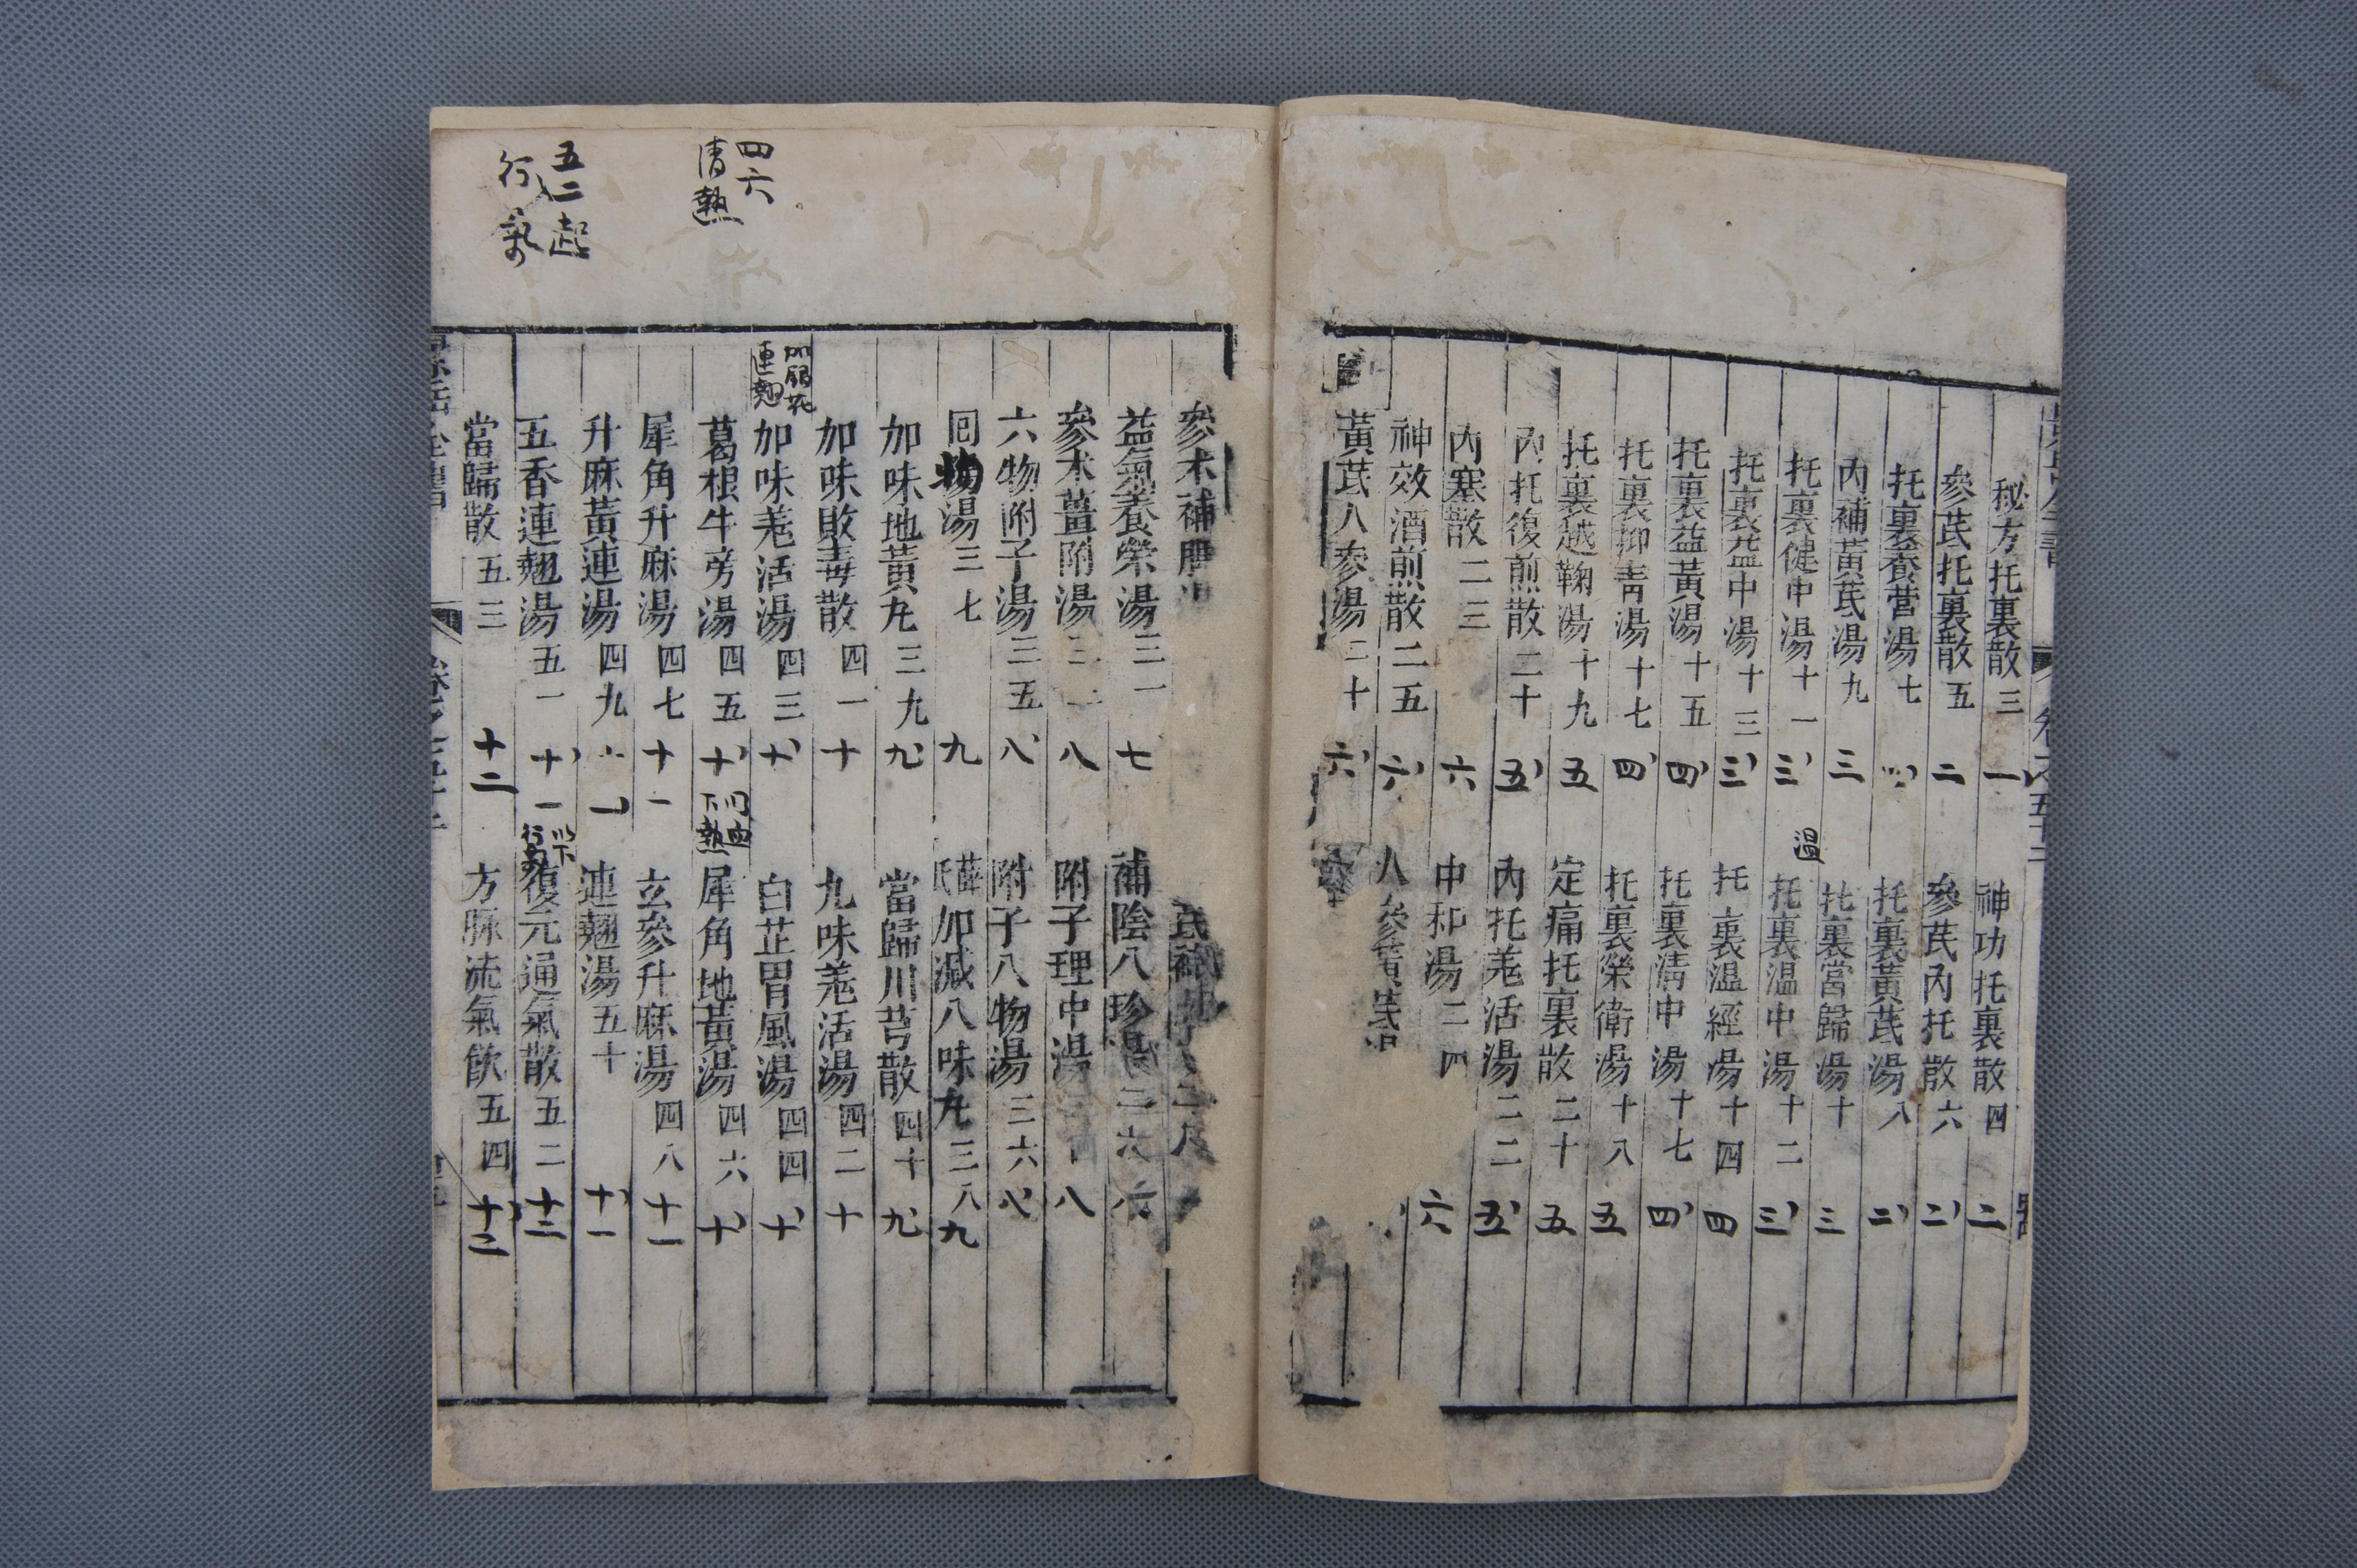 秘方托裏散三 一
神功托裏散四 二
參芪托裏散五 二
參芪內托散六 二
托裏養營湯七
托裏黃芪湯八 二
內補黃芪湯九 三
托裏當歸湯十 三
托裏健中湯十一 三
溫
托裏溫中湯十二 三
托裏益中湯十三 三
托裏溫經湯十四 四
托裏益黃湯十五 四
托裏清中湯十七 四
托裏抑青湯十七 四
托裏榮衛湯十八 五
托裏越鞠湯十九 五
定痛托裏散二十 五
內托復煎散二十 五
內托羗活湯二二 五
內塞散二三 六
中和湯二四 六
神效酒煎散二五 六
八參黃芪
黃芪八參湯二十 六
四六
清熱
五二起
行氣
參朮補脾
氏補
益氣養榮湯三一 七
補陰八珍湯
參朮薑附湯 八
附子理中湯 八
六物附子湯三五 八
附子八物湯三六 八
回陽湯三七 九
薛氏加減八味丸三八 九
加味地黃丸三九 九
當歸川芎散四十 九
加味敗毒散四一 十
九味羗活湯四二 十
加銀花
連翹
加味羗活湯四三 十
白芷胃風湯四四 十
葛根牛旁湯四五 十
犀角地黃湯四六 十
犀角升麻湯四七 十一
玄參升麻湯四八 十一
升麻黃連湯四九
連翹湯五十 十一
五香連翹湯五一 十一
以下
行氣
復元通氣散五二 十二
當歸散五三 十二
方脈流氣飲五四 十二